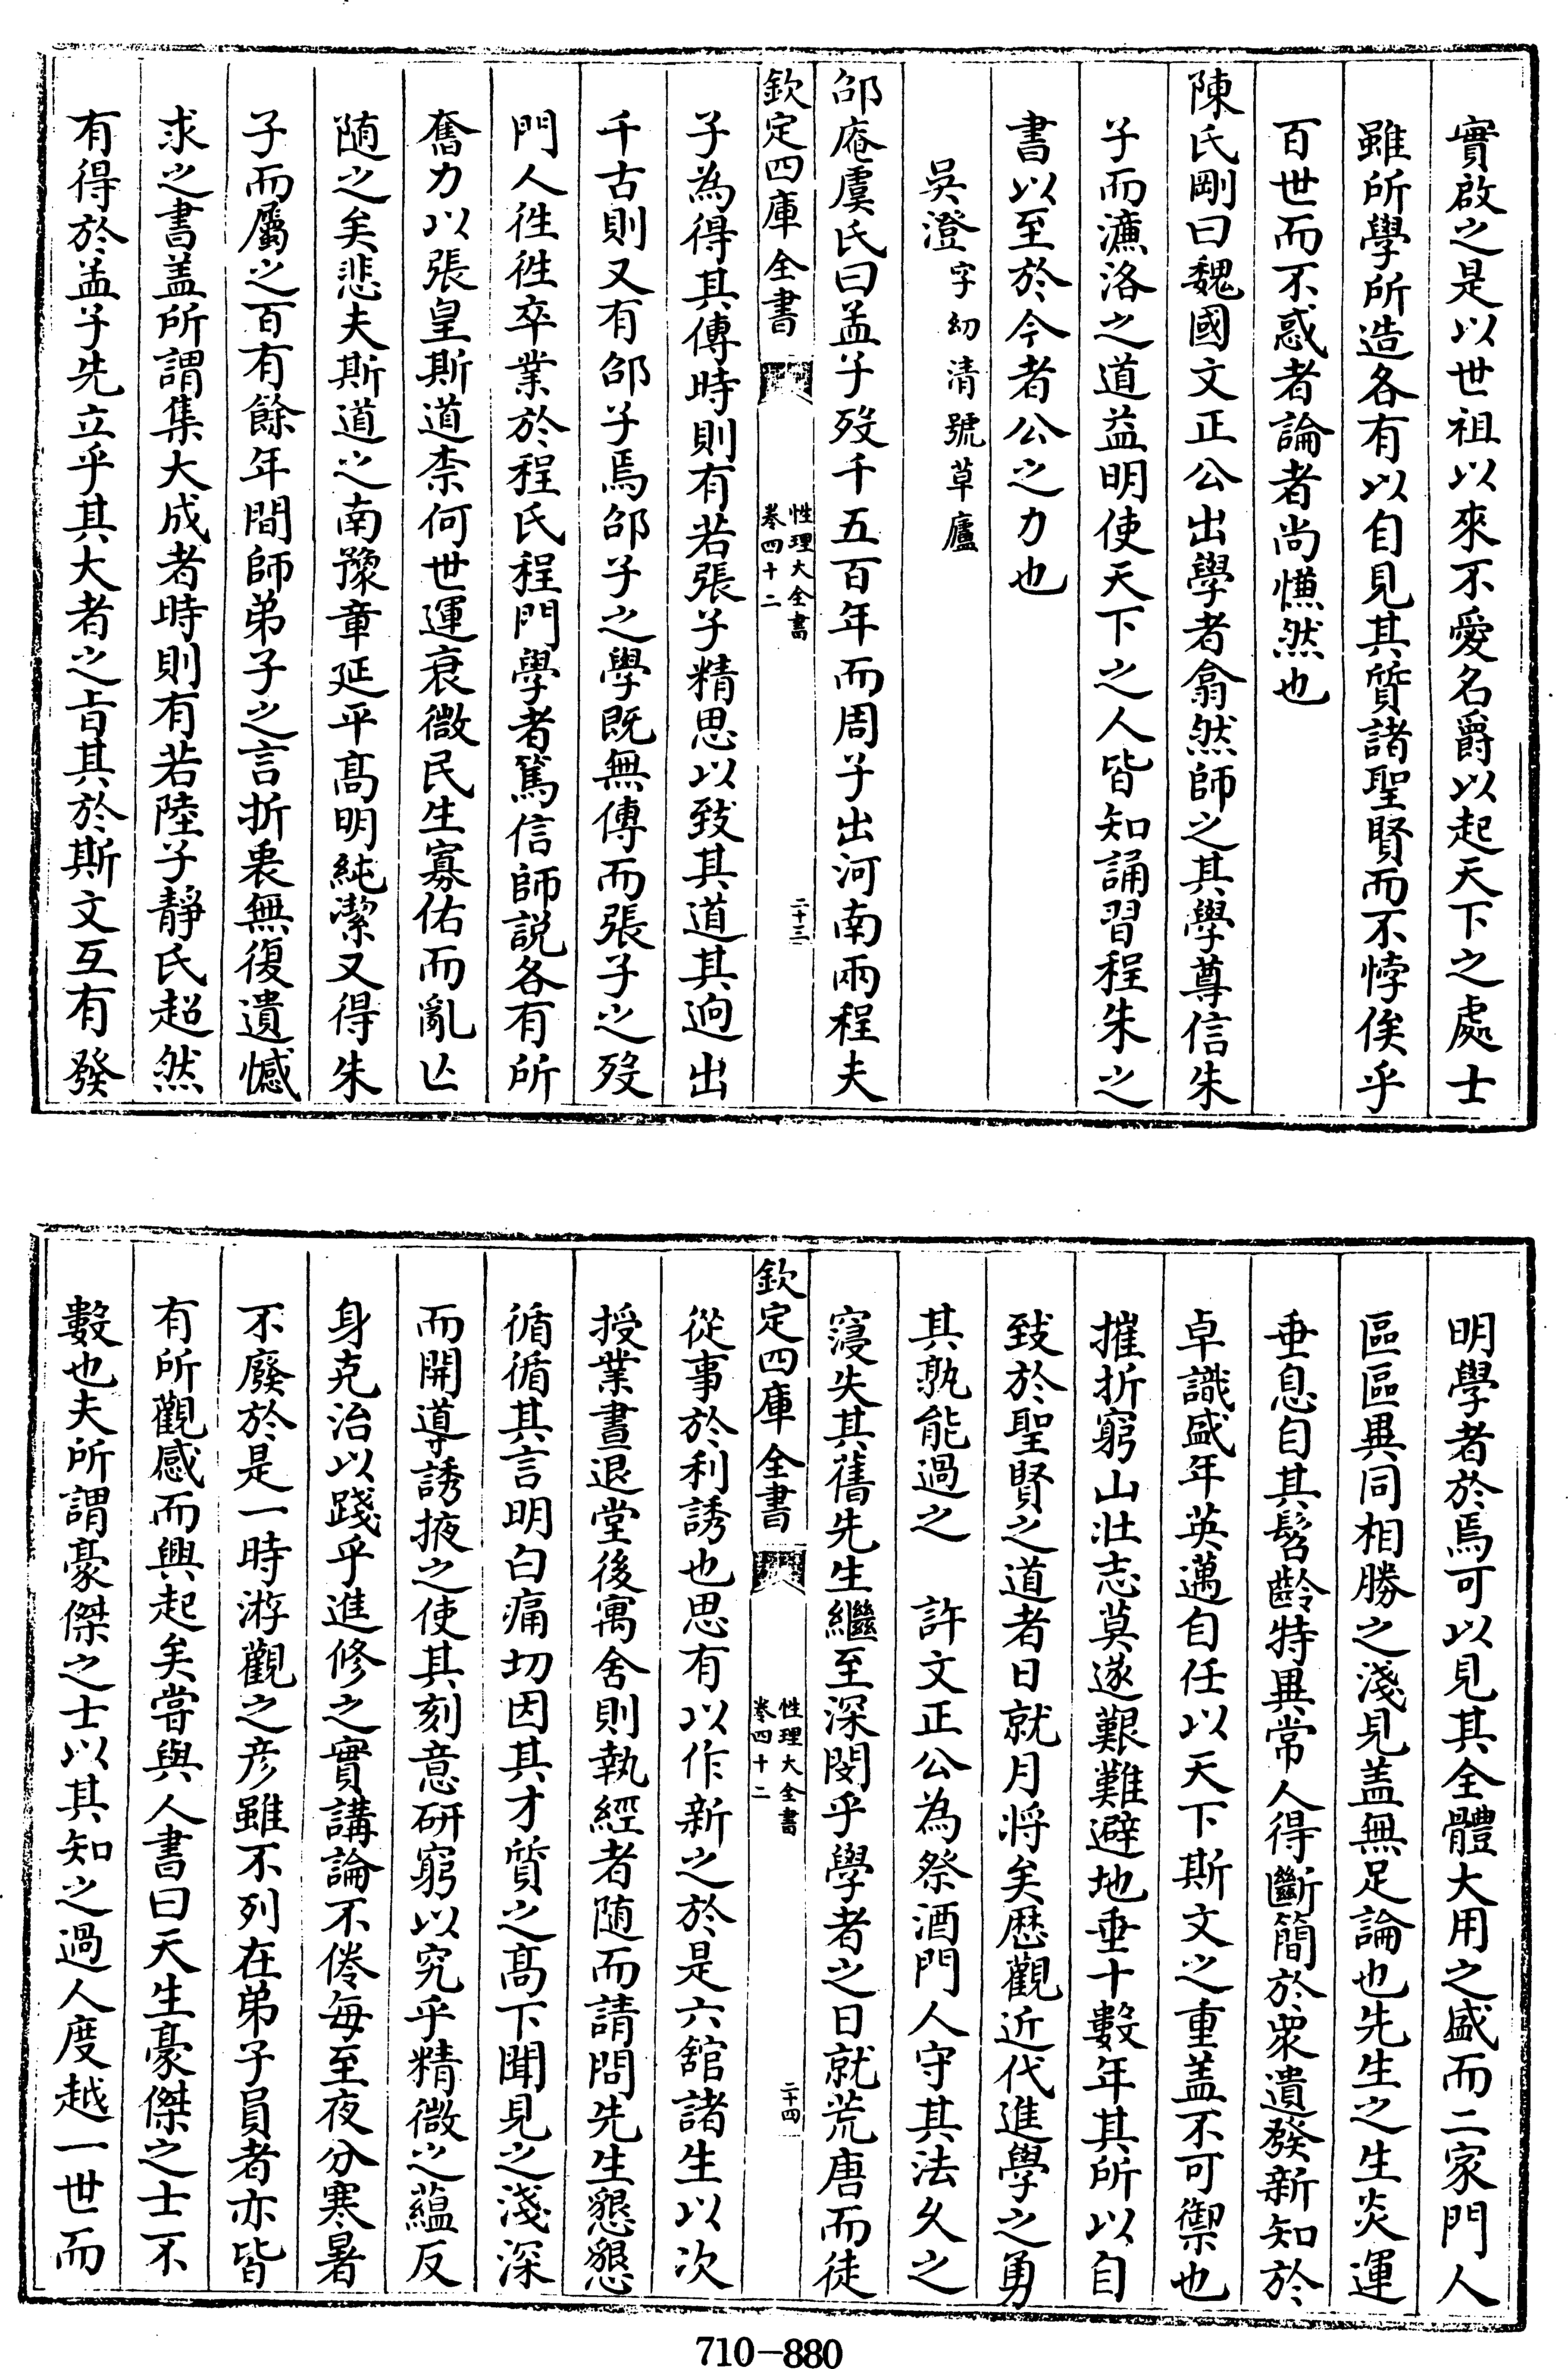 實啟之是以世祖以來不愛名爵以起天下之處士
雖所學所造各有以自見其質諸聖賢而不悖俟乎
百世而不惑者論者尚慊然也
陳氏剛曰魏國文正公出學者翕然師之其學尊信朱
子而濂洛之道益明使天下之人皆知誦習程朱之
書以至於今者公之力也
吳澄字幼清號草廬
邵庵虞氏曰孟子歿千五百年而周子出河南兩程夫
欽定四庫全書
性理大全書
卷四十二
二十三
子為得其傳時則有若張子精思以致其道其逈出
千古則又有邵子焉邵子之學既無傳而張子之歿
門人徃徃卒業於程氏程門學者篤信師説各有所
奮力以張皇斯道柰何世運衰微民生寡佑而亂亡
随之矣悲夫斯道之南豫章延平髙明純潔又得朱
子而屬之百有餘年間師弟子之言折衷無復遺憾
求之書盖所謂集大成者時則有若陸子靜氏超然
有得於孟子先立乎其大者之旨其於斯文互有發
明學者於焉可以見其全體大用之盛而二家門人
區區異同相勝之淺見盖無足論也先生之生炎運
垂息自其髫齡特異常人得斷簡於衆遺發新知於
卓識盛年英邁自任以天下斯文之重盖不可禦也
摧折窮山壮志莫遂艱難避地垂十數年其所以自
致於聖賢之道者日就月將矣歴觀近代進學之勇
其孰能過之　許文正公為祭酒門人守其法久之
寖失其舊先生繼至深閔乎學者之日就荒唐而徒
欽定四庫全書
性理大全書
卷四十二
二十四
從事於利誘也思有以作新之於是六舘諸生以次
授業晝退堂後寓舍則執經者随而請問先生懇懇
循循其言明白痛切因其才質之髙下聞見之淺深
而開導誘掖之使其刻意研窮以究乎精微之藴反
身克治以踐乎進修之實講論不倦每至夜分寒暑
不廢於是一時游觀之彦雖不列在弟子員者亦皆
有所觀感而興起矣嘗與人書曰天生豪傑之士不
數也夫所謂豪傑之士以其知之過人度越一世而
710-880